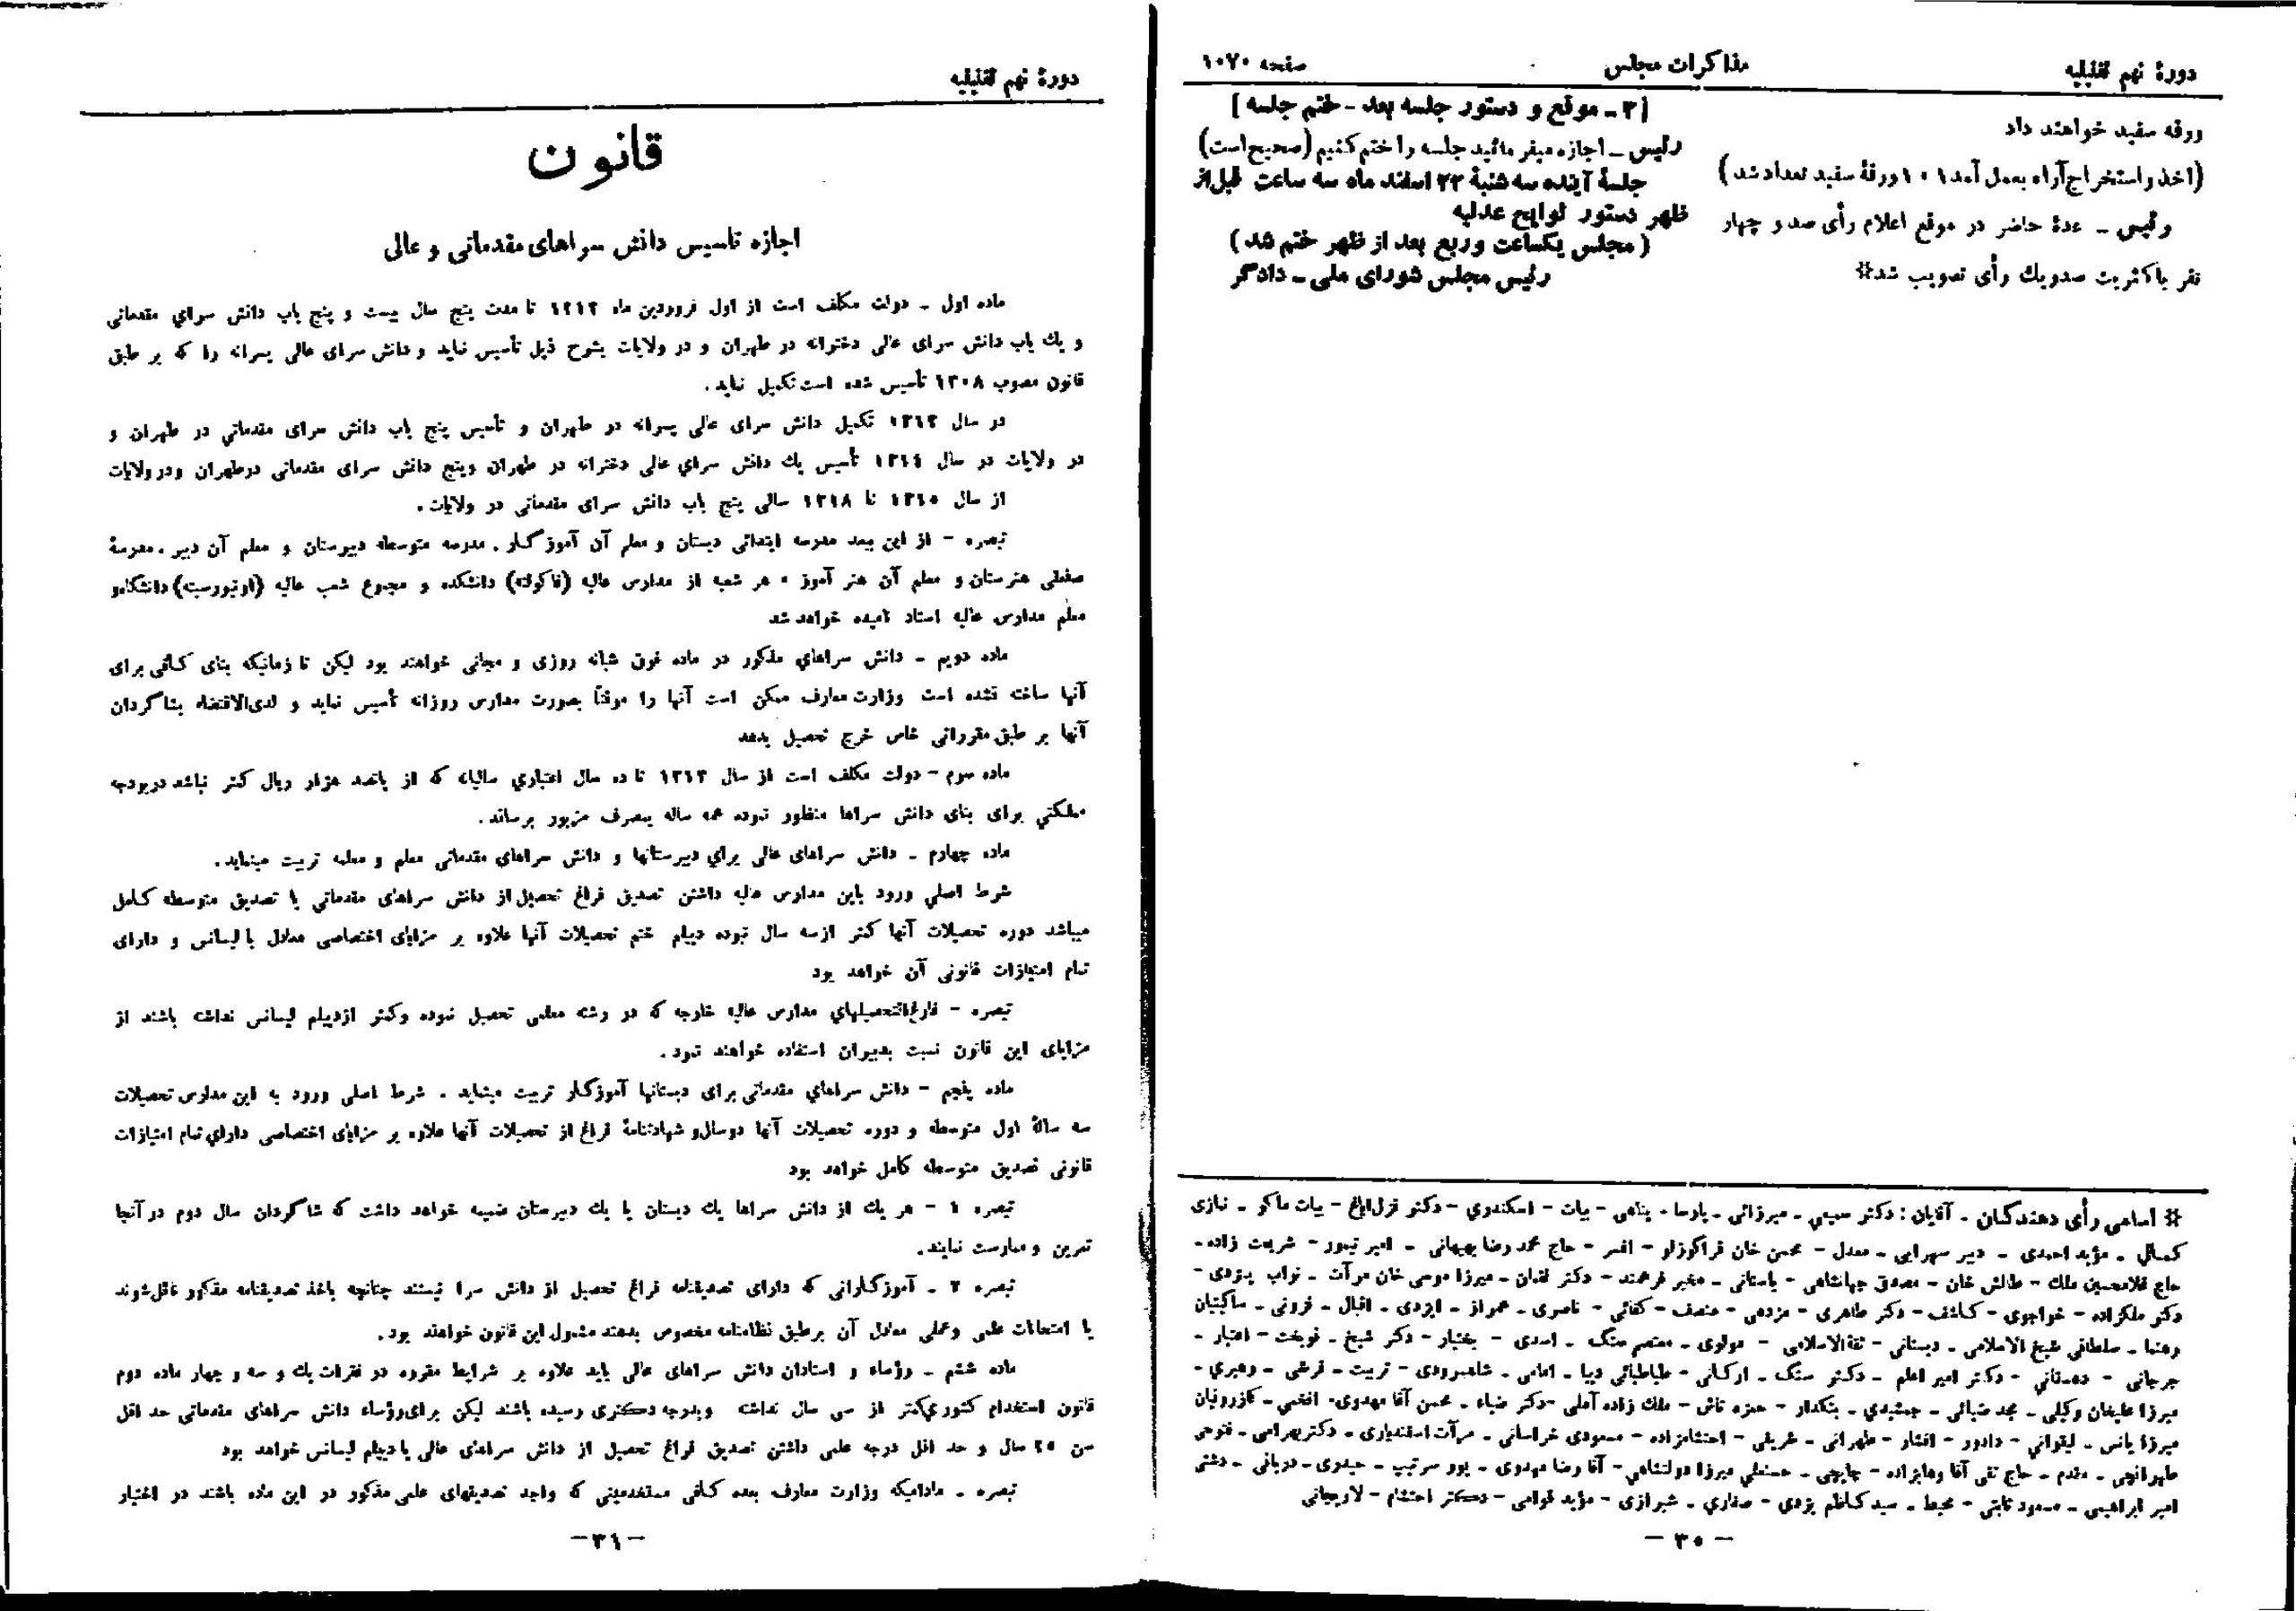 دورهٔ نهم تقنینیه
مذاکرات مجلس
صفحه ۱۰۷۰
ورقه سفید خواهند داد
(اخذ و استخراج آراء بعمل آمد ۱۰۱ ورقهٔ سفید تعداد شد)
رئیس ـ عدهٔ حاضر در موقع اعلام رأی صد و چهار
نفر باکثریت صدویك رأی تصویب شد#
[۳ ـ موقع و دستور جلسه بعد ـ ختم جلسه]
رئیس ـ اجازه میفرمائید جلسه را ختم کنیم (صحیح است)
جلسهٔ آینده سه شنبهٔ ۲۲ اسفند ماه سه ساعت قبل از
ظهر دستور لوایح عدلیه
(مجلس یکساعت وربع بعد از ظهر ختم شد)
رئیس مجلس شورای ملی ـ دادگر
# اسامی رأی دهندگان ـ آقایان : دکتر سمیعی ـ میرزائی ـ پارسا ـ پناهی ـ بیات ـ اسکندری ـ دکتر قزل‌ایاغ ـ بیات ماکو ـ نمازی
کمالی ـ مؤید احمدی ـ دبیر سهرابی ـ معدل ـ محسن خان قراگوزلو ـ افسر ـ حاج محمد رضا بهبهانی ـ امیر تیمور ـ شریعت زاده ـ
حاج غلامحسین ملك ـ طالش خان ـ مصدق جهانشاهی ـ یاسائی ـ مخبر فرهمند ـ دکتر لقمان ـ میرزا موسی خان مرآت ـ نواب یزدی ـ
دکتر ملکزاده ـ خواجوی ـ کاشف ـ دکتر طاهری ـ مژدهی ـ منصف ـ کفائی ـ ناصری ـ همراز ـ ایزدی ـ اقبال ـ قزونی ـ ساکینیان
رهنما ـ سلطانی شیخ الاسلامی ـ دبستانی ـ ثقةالاسلامی ـ مولوی ـ معتصم سنگ ـ اسدی ـ بختیار ـ دکتر شیخ ـ نوبخت ـ اعتبار ـ
جرجانی ـ دهستانی ـ دکتر امیر اعلم ـ دکتر سنگ ـ ارکانی ـ طباطبائی دیبا ـ امامی ـ شاهرودی ـ تربیت ـ قرشی ـ رهبری ـ
میرزا علیخان وکیلی ـ محمد ضیائی ـ جمشیدی ـ بنکدار ـ حمزه تاش ـ ملك زاده آملی ـ دکتر ضیاء ـ محسن آقا مهدوی ـ افخمی ـ کازرونیان
میرزا یانس ـ لیقوانی ـ دادور ـ افشار ـ طهرانی ـ شریفی ـ احتشام‌زاده ـ مسعودی خراسانی ـ مرآت اسفندیاری ـ دکتر بهرامی ـ فتوحی
طهرانچی ـ مقدم ـ حاج تقی آقا وهاب‌زاده ـ چایچی ـ حسنعلی میرزا دولتشاهی ـ آقا رضا مهدوی ـ پور سرتیپ ـ حیدری ـ دربانی ـ دشتی
امیر ابراهیمی ـ مسعود ثابتی ـ محیط ـ سید کاظم یزدی ـ صفاری ـ شیرازی ـ مؤید قوامی ـ دکتر احتشام ـ لاریجانی
ـ ۳۰ ـ
دورهٔ نهم تقنینیه
قانون
اجازه تاسیس دانش سراهای مقدماتی و عالی
ماده اول ـ دولت مکلف است از اول فروردین ماه ۱۳۱۳ تا مدت پنج سال بیست و پنج باب دانش سرای مقدماتی
و یك باب دانش سرای عالی دخترانه در طهران و در ولایات بشرح ذیل تأسیس نماید و دانش سرای عالی پسرانه را که بر طبق
قانون مصوب ۱۳۰۸ تأسیس شده است تکمیل نماید.
در سال ۱۳۱۳ تکمیل دانش سرای عالی پسرانه در طهران و تأسیس پنج باب دانش سرای مقدماتی در طهران و
در ولایات در سال ۱۳۱٤ تأسیس یك دانش سرای عالی دخترانه در طهران وپنج دانش سرای مقدماتی درطهران ودر ولایات
از سال ۱۳۱۵ تا ۱۳۱۸ سالی پنج باب دانش سرای مقدماتی در ولایات.
تبصره ـ از این ببعد مدرسه ابتدائی دبستان و معلم آن آموزگار، مدرسه متوسطه دبیرستان و معلم آن دبیر، مدرسهٔ
صنعتی هنرستان و معلم آن هنر آموز ، هر شعبه از مدارس عالیه (فاکولته) دانشکده و مجموع شعب عالیه (اونیورسیته) دانشگاه و
معلم مدارس عالیه استاد نامیده خواهد شد
ماده دویم ـ دانش سراهای مذکور در ماده فوق شبانه روزی و مجانی خواهند بود لیکن تا زمانیکه بنای کافی برای
آنها ساخته نشده است وزارت معارف ممکن است آنها را موقتاً بصورت مدارس روزانه تأسیس نماید و لدی‌الاقتضاء بشاگردان
آنها بر طبق مقرراتی خاص خرج تحصیل بدهد
ماده سوم ـ دولت مکلف است از سال ۱۳۱۳ تا ده سال اعتباری سالیانه که از پانصد هزار ریال کمتر نباشد دربودجه
مملکتی برای بنای دانش سراها منظور نموده همه ساله بمصرف مزبور برساند.
ماده چهارم ـ دانش سراهای عالی برای دبیرستانها و دانش سراهای مقدماتی معلم و معلمه تربیت مینماید.
شرط اصلی ورود باین مدارس عالیه داشتن تصدیق فراغ تحصیل از دانش سراهای مقدماتی یا تصدیق متوسطه کامل
میباشد دوره تحصیلات آنها کمتر ازسه سال نبوده دیپلم ختم تحصیلات آنها علاوه بر مزایای اختصاصی معادل با لیسانس و دارای
تمام امتیازات قانونی آن خواهد بود
تبصره ـ فارغ‌التحصیلهای مدارس عالیه خارجه که در رشته معلمی تحصیل نموده وکمتر ازدیپلم لیسانس نداشته باشند از
مزایای این قانون نسبت بدبیران استفاده خواهند نمود.
ماده پنجم ـ دانش سراهای مقدماتی برای دبستانها آموزگار تربیت مینماید . شرط اصلی ورود به این مدارس تحصیلات
سه سالهٔ اول متوسطه و دوره تحصیلات آنها دوسال و شهادتنامهٔ فراغ از تحصیلات آنها علاوه بر مزایای اختصاصی دارای تمام امتیازات
قانونی تصدیق متوسطه کامل خواهد بود
تبصره ۱ ـ هر یك از دانش سراها یك دبستان یا یك دبیرستان ضمیمه خواهد داشت که شاگردان سال دوم در آنجا
تمرین و ممارست نمایند.
تبصره ۲ ـ آموزگارانی که دارای تصدیقنامه فراغ تحصیل از دانش سرا نیستند چنانچه باخذ تصدیقنامه مذکور نائل شوند
یا امتحانات علمی وعملی معادل آن برطبق نظامنامه مخصوص بدهند مشمول این قانون خواهند بود.
ماده ششم ـ رؤساء و استادان دانش سراهای عالی باید علاوه بر شرایط مقرره در فقرات یك و سه و چهار ماده دوم
قانون استخدام کشوری کمتر از سی سال نداشته وبدرجه دکتری رسیده باشند لیکن برای رؤساء دانش سراهای مقدماتی حد اقل
سن ۲۵ سال و حد اقل درجه علمی داشتن تصدیق فراغ تحصیل از دانش سراهای عالی یا دیپلم لیسانس خواهد بود
تبصره ـ مادامیکه وزارت معارف بعده کافی مستخدمینی که واجد تصدیقهای علمی مذکور در این ماده باشند در اختیار
ـ ۳۱ ـ